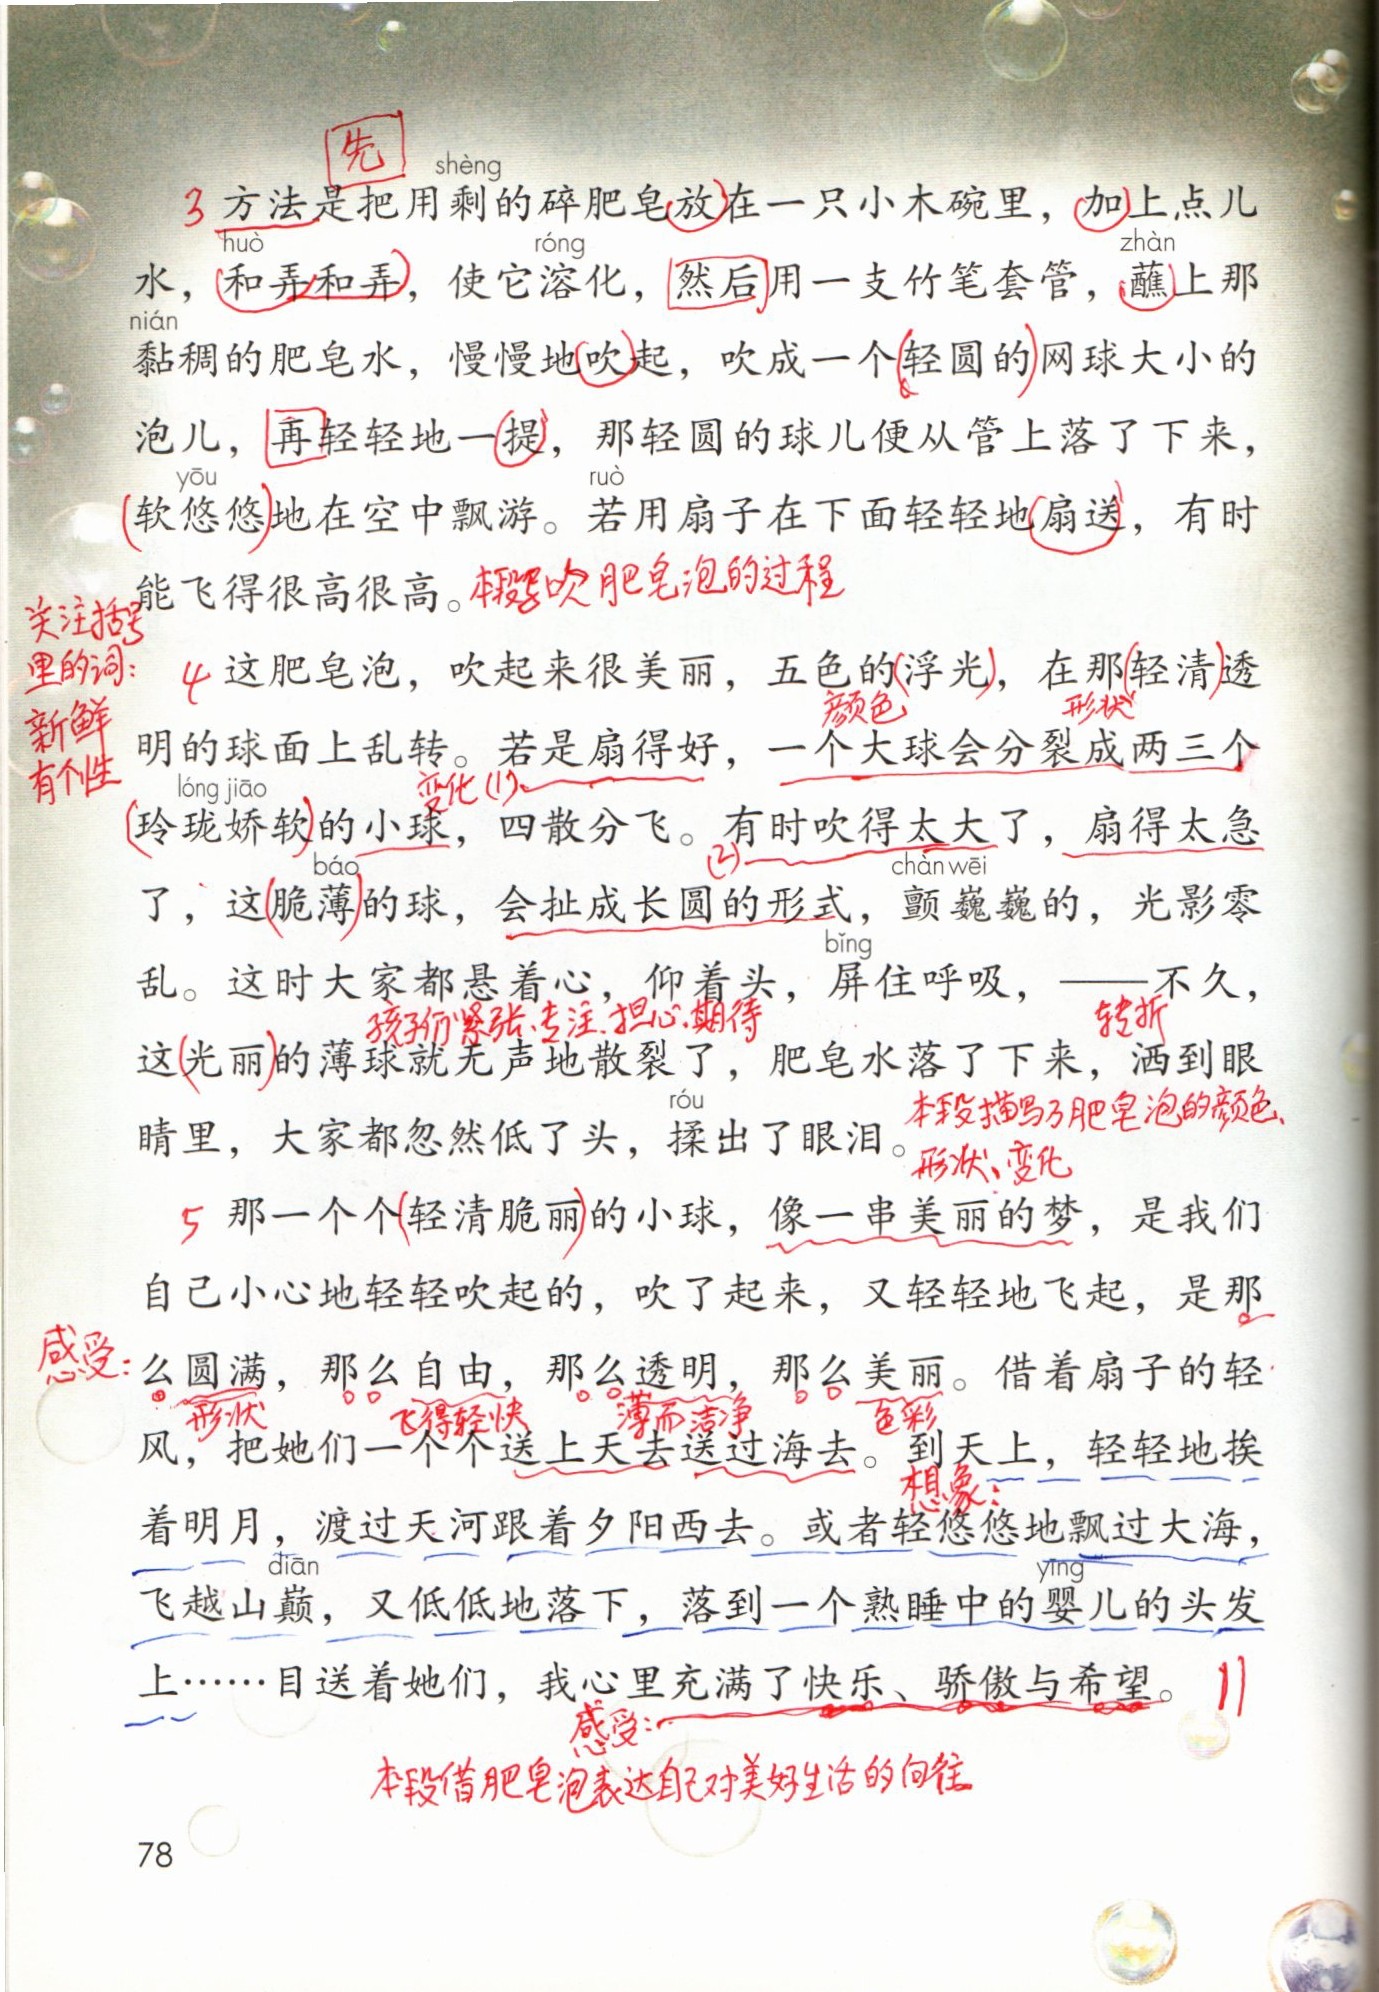 先
shèng
3 方法是把用剩的碎肥皂放在一只小木碗里，加上点儿
huò róng zhàn
水，和弄和弄，使它溶化，然后用一支竹笔套管，蘸上那
nián
黏稠的肥皂水，慢慢地吹起，吹成一个轻圆的网球大小的
泡儿，再轻轻地一提，那轻圆的球儿便从管上落了下来，
yōu ruò
软悠悠地在空中飘游。若用扇子在下面轻轻地扇送，有时
能飞得很高很高。本段写吹肥皂泡的过程
关注括号
里的词：
新鲜
有个性
4 这肥皂泡，吹起来很美丽，五色的浮光，在那轻清透
颜色 形状
明的球面上乱转。若是扇得好，一个大球会分裂成两三个
lóng jiāo 变化(1)
玲珑娇软的小球，四散分飞。有时吹得太大了，扇得太急
báo (2) chàn wēi
了，这脆薄的球，会扯成长圆的形式，颤巍巍的，光影零
bǐng
乱。这时大家都悬着心，仰着头，屏住呼吸，——不久，
孩子们紧张、专注、担心、期待 转折
这光丽的薄球就无声地散裂了，肥皂水落了下来，洒到眼
róu 本段描写了肥皂泡的颜色、
睛里，大家都忽然低了头，揉出了眼泪。
形状、变化
5 那一个个轻清脆丽的小球，像一串美丽的梦，是我们
自己小心地轻轻吹起的，吹了起来，又轻轻地飞起，是那
感受：
么圆满，那么自由，那么透明，那么美丽。借着扇子的轻
形状 飞得轻快 薄而洁净 色彩
风，把她们一个个送上天去送过海去。到天上，轻轻地挨
想象：
着明月，渡过天河跟着夕阳西去。或者轻悠悠地飘过大海，
diān yīng
飞越山巅，又低低地落下，落到一个熟睡中的婴儿的头发
上……目送着她们，我心里充满了快乐、骄傲与希望。
感受：
本段借肥皂泡表达自己对美好生活的向往
78